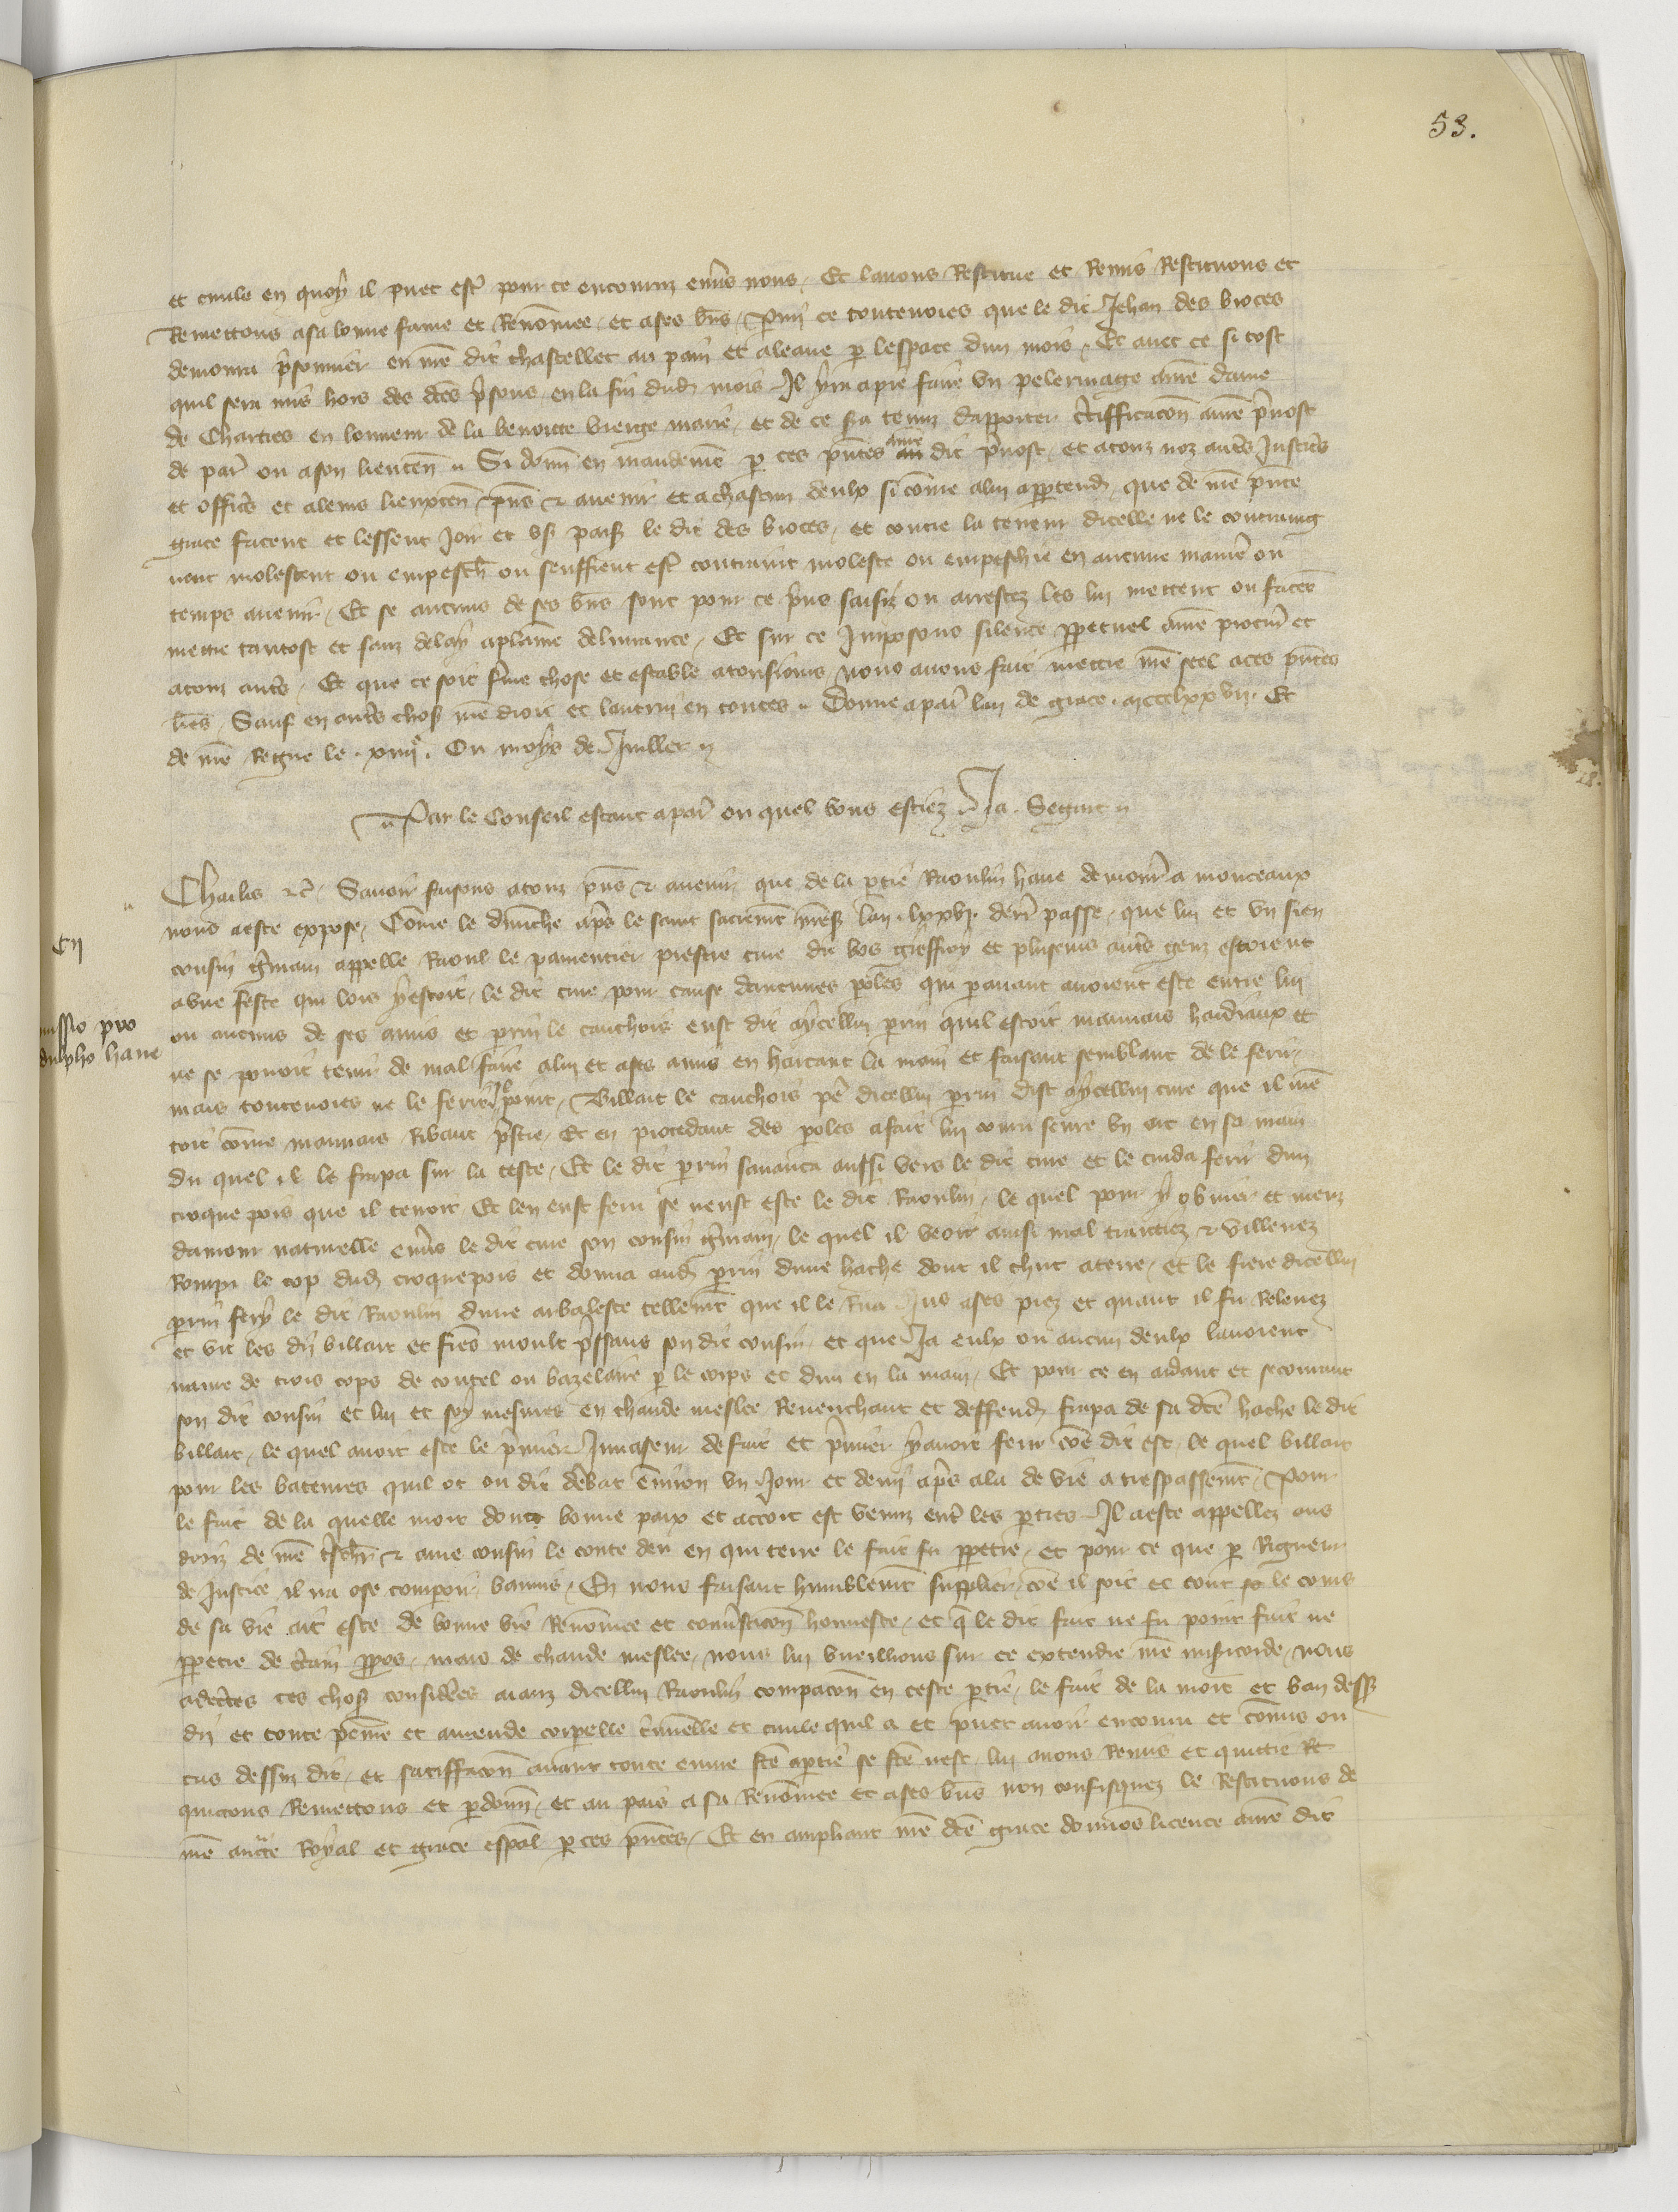 53.
et civile en quoy il puet estre pour ce encouruz envers nous, Et lavons Restitue et Remis Restituons et
Remettons a sa bonne fame et Renommee, et a ses biens, Parmi ce toutevoies que le dit Jehan des broces
demourra prisonnier en nostre dit chastellet au pain et a leaue par lespace dun mois, Et avec ce si tost
quil sera mis hors des dictes prisons en la fin dud mois Il yra apie faire un pelerinage a nostre dame
de Chartres en lonneur de la benoicte vierge marie, et de ce sera tenuz dapporter certifficacion a nostre prevost
de paris ou a son lieuten Si donn en mandement par ces presentes au nostre dit prevost, et a touz noz autres Justiciers
et officiers et a leurs lieuxten presens et avenir et a chascun deulx si comme a lui appartend, que de nostre presente
grace facent et lessent Joir et user paisiblement le dit des broces, et contre la teneur dicelle ne le contraing
nent molestent ou empeschent ou seuffrent estre contraint moleste ou empeschie en aucune maniere ou
temps avenir, Et se aucuns de ses biens sont pour ce prins saisiz ou arrestez les lui mettent ou facent
mettre tantost et sanz delay a plaine delivrance, Et sur ce Imposons silence perpetuel a nostre procureur et
a touz autres, Et que ce soit ferme chose et estable a tousiours nous avons fait mettre nostre seel a ces presentes
lettres, Sauf en autres choses nostre droit et lautrui en toutes Donne a paris lan de grace mccclxxvii Et
de nostre Regne le xiiii.e Ou moys de Juillet
Par le Conseil estant a paris ou quel vous estiez Ja. Segart
Charles etc. Savoir faisons a touz presens et avenir que de la partie Raoulin have demourant a monceaux
nous a este expose, Comme le dimenche apres le saint sacrement lan lxxvi derrenier passe, que lui et un sien
cousin germain appelle Raoul le parmentier prestre cure du bos greffroy et pluseurs autres genz estoient
a une feste qui lors y estoit, le dit cure pour cause daucunes paroles qui par avant avoient este entre lui
ou aucuns de ses amis et perrin le cauchois eust dit a ycellui perrin quil estoit mauvais hardiaux et
ne se povoit tenir de mal faire a lui et a ses amis en haucant la main et faisant semblant de le ferir,
mais toutevoies ne le feri il point, Billart le cauchois pere dicellui perrin dist a ycellui cure que il men
toit comme mauvais Ribaut prestre, Et en procedant des paroles a fait lui couru seure un arc en sa main
du quel il le frapa sur la teste, Et le dit perrin savanca aussi vers le dit cure et le cuida ferir dun
croquepois que il tenoit, Et len eust feru se neust este le dit Raoulin, le quel pour y obvier et meuz
damour naturelle envers le dit cure son cousin germain, le quel il veoit ainsi mal traictiez et villenez
Rompi le cop dud croquepois et donna aud perrin dune hache dont il chut a terre, et le frere dicellui
perrin fery le dit Raoulin dune arbaleste tellement que il le Rua Jus a ses piez et quant il fu Relevez
et vit les diz billart et freres moult pressans son dit cousin, et que Ja eulx ou aucun deulx lavoient
navre de trois cops de coutel ou bazelaire par le corps et dun en la main, Et pour ce en aidant et secourant
son dit cousin et lui et soy mesmes en chaude meslee Revenchant et deffend frapa de sa dicte hache le dit
billart, le quel avoit este le premier Invaseur de fait et premier y avoit feru comme dit est, le quel billart
pour les bateures quil ot ou dit debat environ un Jour et demi apres ala de vie a trespassement, Pour
le fait de la quelle mort dont bonne paix et accort est venuz entre les parties Il a este appellez aus
droiz de nostre treschier et ame cousin le conte deu en qui terre le fait fu perpetre, et pour ce que par Rigueur
de Justice il na ose comparoir banniz, En nous faisant humblement supplier, comme il soit et tout le cours
de sa vie ait este de bonne vie Renommee et conversacion honneste, et que le dit fait ne fu point fait ne
perpetre de certain propos, mais de chaude meslee, nous lui vueillions sur ce extendre nostre misericorde, nous
adecertes ces choses considerees aianz dicellui Raoulin compacion en ceste partie, le fait de la mort et ban dessus
diz et toute peine et amende corporelle criminelle et civile quil a et puet avoir encouru et commis ou
cas dessus dit, et satiffacion avant toute euvre faicte a partie se faicte nest, lui avons Remis et quictie Re
quictons Remettons et pardonn, et au pais a sa Renommee et a ses biens non confisquez le Restituons de
nostre auctorite Royal et grace especial par ces presentes, Et en ampliant nostre dicte grace donnons licence a nostre dit
Cii
missio pro
dulpho have